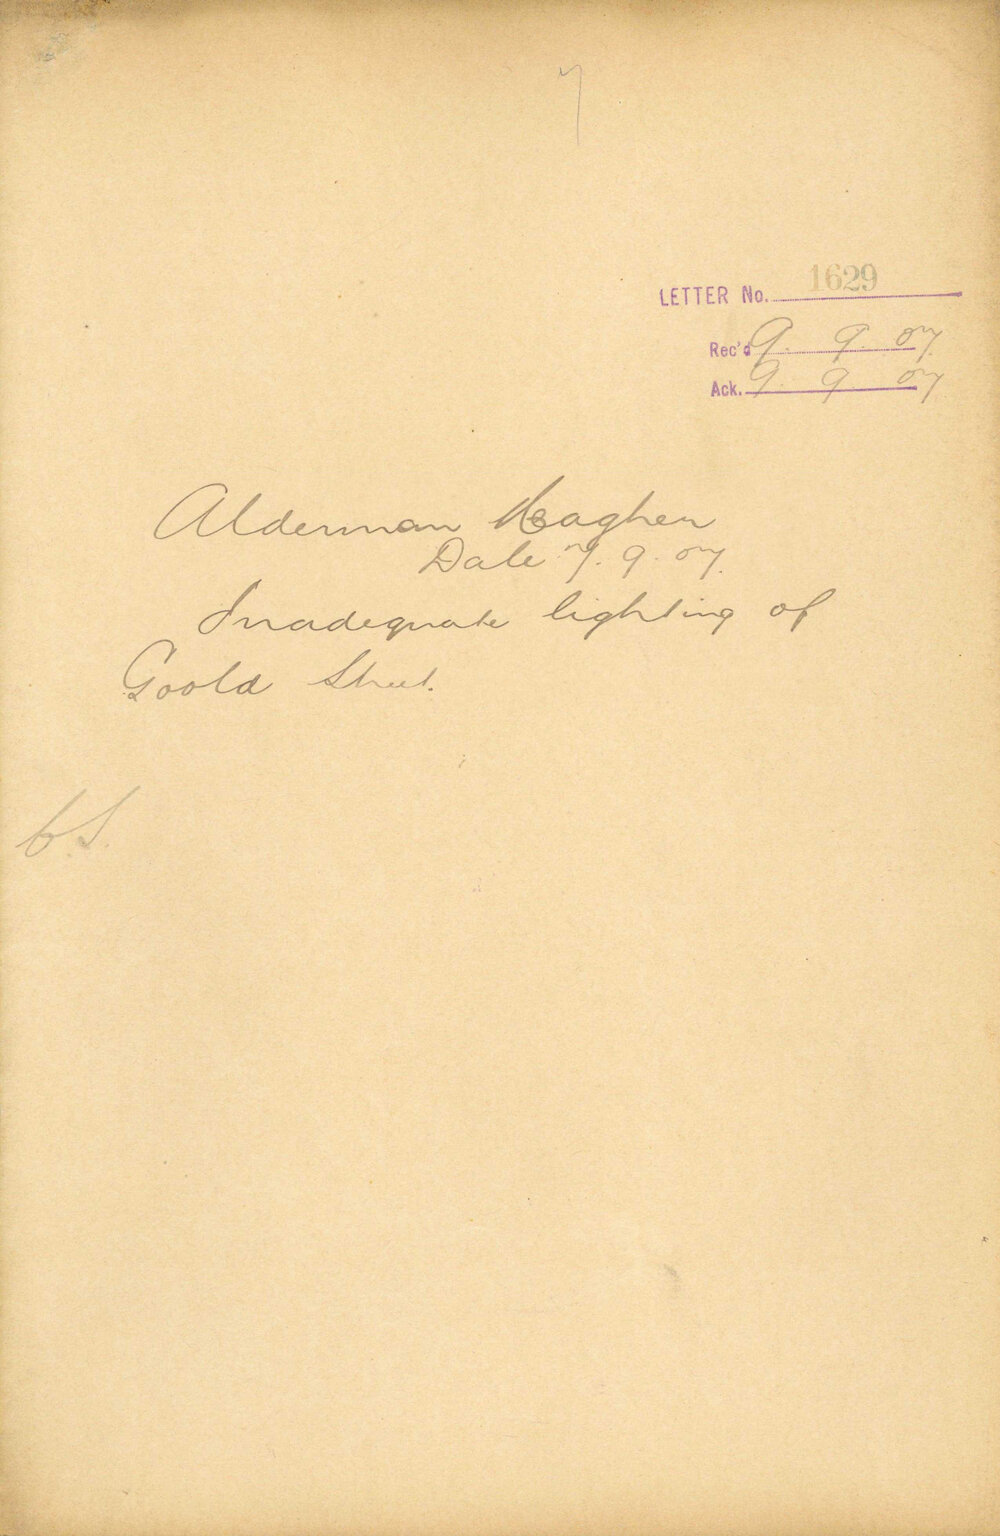 7
LETTER No. 1629
Rec'd 9. 9. 07
Ack. 9. 9 07
Alderman Meagher
Date 7. 9. 07.
Inadequate lighting of
Goold Street.